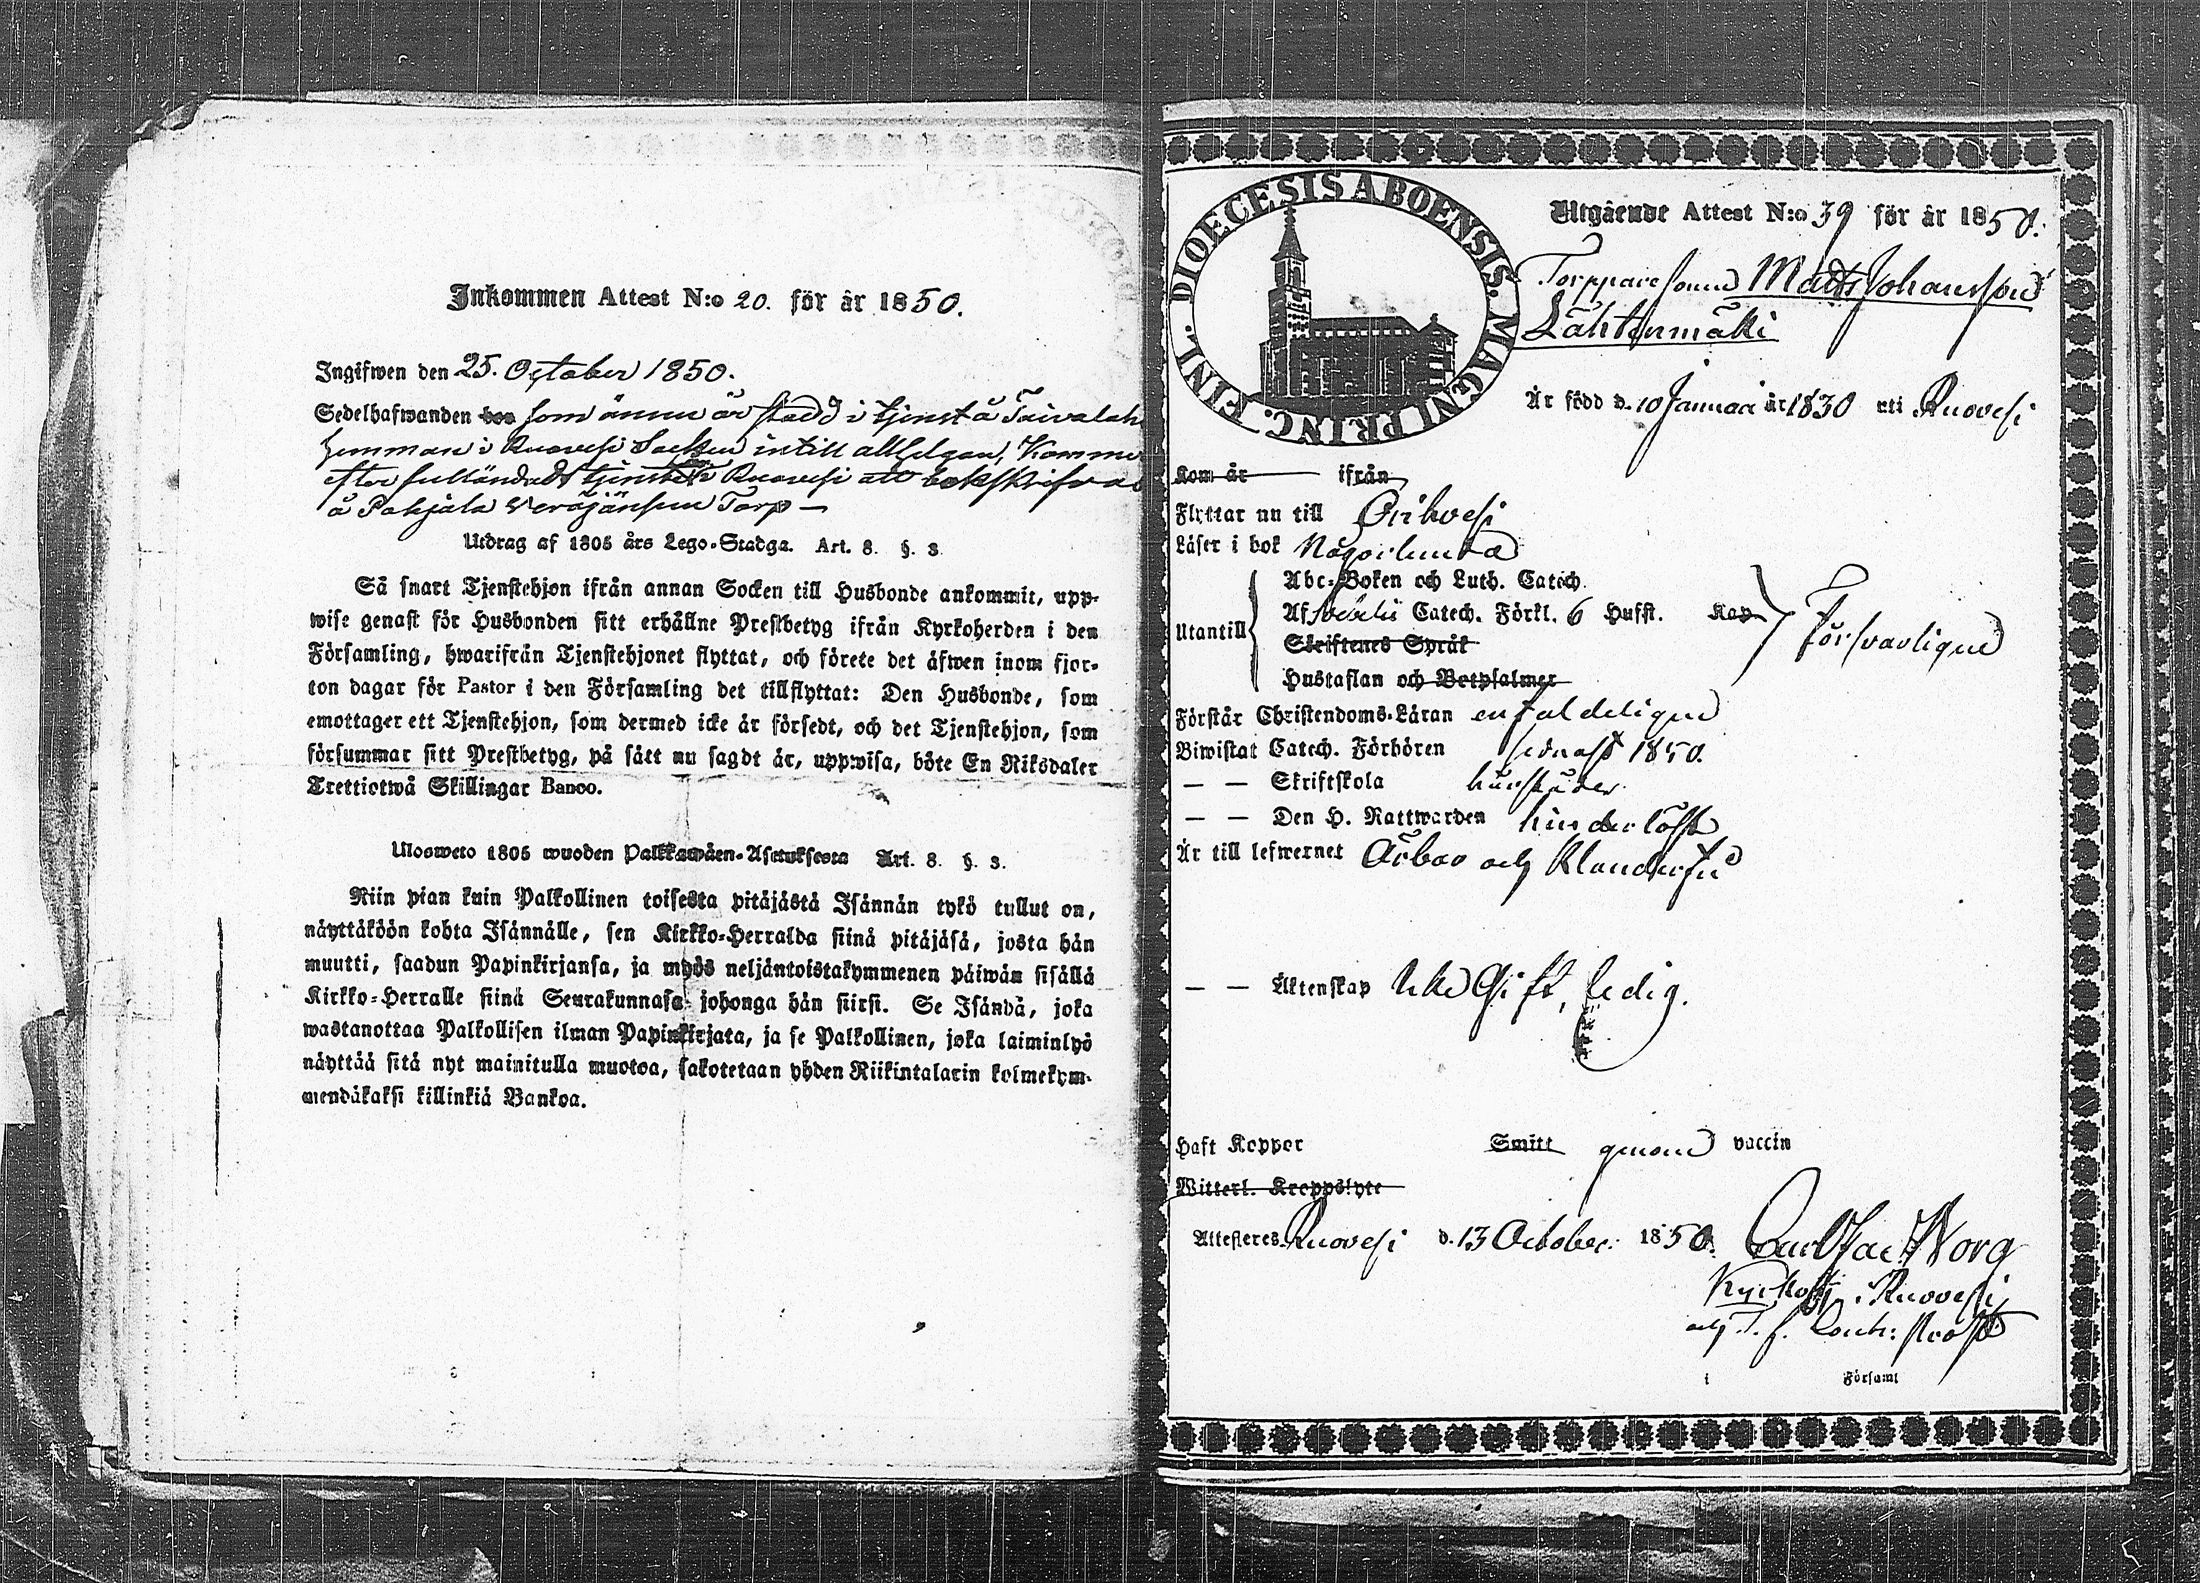 Inkommen Attest N:o 20. för år 1850.
Ingifwen den 25. October 1850.
Sedelhafwanden hos som ännu är stadd i tjenst å Taivalah
hemman i Ruovesi Socken intill allhelgon, Kommer
efter fulländadt tjenste i Ruovesi att bokskrifvas
å Pohjala Veräjänsuu Torp —
Utdrag af 1805 års Lego-Stadga. Art. 8. §. 3.
Så snart Tjenstehjon ifrån annan Socken till Husbonde ankommit, upp-
wise genast för Husbonden sitt erhållne Prestbetyg ifrån Kyrkoherden i den
Församling, hwarifrån Tjenstehjonet flyttat, och förete det äfwen inom fjor-
ton dagar för Pastor i den Församling det tillflyttat: Den Husbonde, som
emottager ett Tjenstehjon, som dermed icke är försedt, och det Tjenstehjon, som
försummar sitt Prestbetyg, på sätt nu sagdt är, uppwisa, böte En Riksdaler
Trettiotwå Skillingar Banco.
Uloosweto 1805 wuoden Palkkawäen-Asetuksesta Art. 8. §. 3.
Niin pian kuin Palkollinen toisesta pitäjästä Isännän tykö tullut on,
näyttäköön kohta Isännälle, sen Kirkko-Herralda siinä pitäjäsä, josta hän
muutti, saadun Papinkirjansa, ja myös neljäntoistakymmenen päiwän sisällä
Kirkko-Herralle siinä Seurakunnasa johonga hän siirsi. Se Isändä, joka
wastanottaa Palkollisen ilman Papinkirjata, ja se Palkollinen, joka laiminlyö
näyttää sitä nyt mainitulla muotoa, sakotetaan yhden Riikintalarin kolmekym-
mendäkaksi killinkiä Bankoa.
DIOECESIS ABOENSIS. MAGNI PRINC. FINL.
Utgående Attest N:o 39 för år 1850.
Torppare sonen Matts Johansson
Lähtenmäki
Är född d. 10 Januari år 1830 uti Ruovesi
Kom år ifrån
Flyttar nu till Orihvesi
Läser i bok Någorlunda
Utantill
Abc-Boken och Luth. Catech.
Af Svebelii Catech. Förkl. 6 Hufst. Kap
Skriftenes Språk
Hustaflan och Botpsalmer
Försvarligen
Förstår Christendoms-Läran enfaldeligen
Biwistat Catech. Förhören sednast 1850.
— — Skriftskola
— — Den H. Nattwarden hinderlöst
Är till lefwernet Ärbar och Klanderfri
— — Äktenskap Icke Gift, ledig.
Haft Koppor Smitt genom vaccin
Witterl. Kroppslyte
Attesteres Ruovesi d. 13 October 1850. Carl Isac Norg
Kyrkoh. i Ruovesi
och T. f. Contr. Prost
i Församl